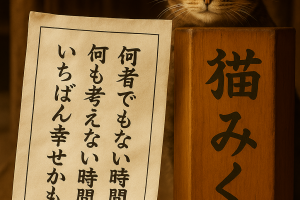 何者でもない時間
何も考えない時間
いちばん幸せかも
猫みく